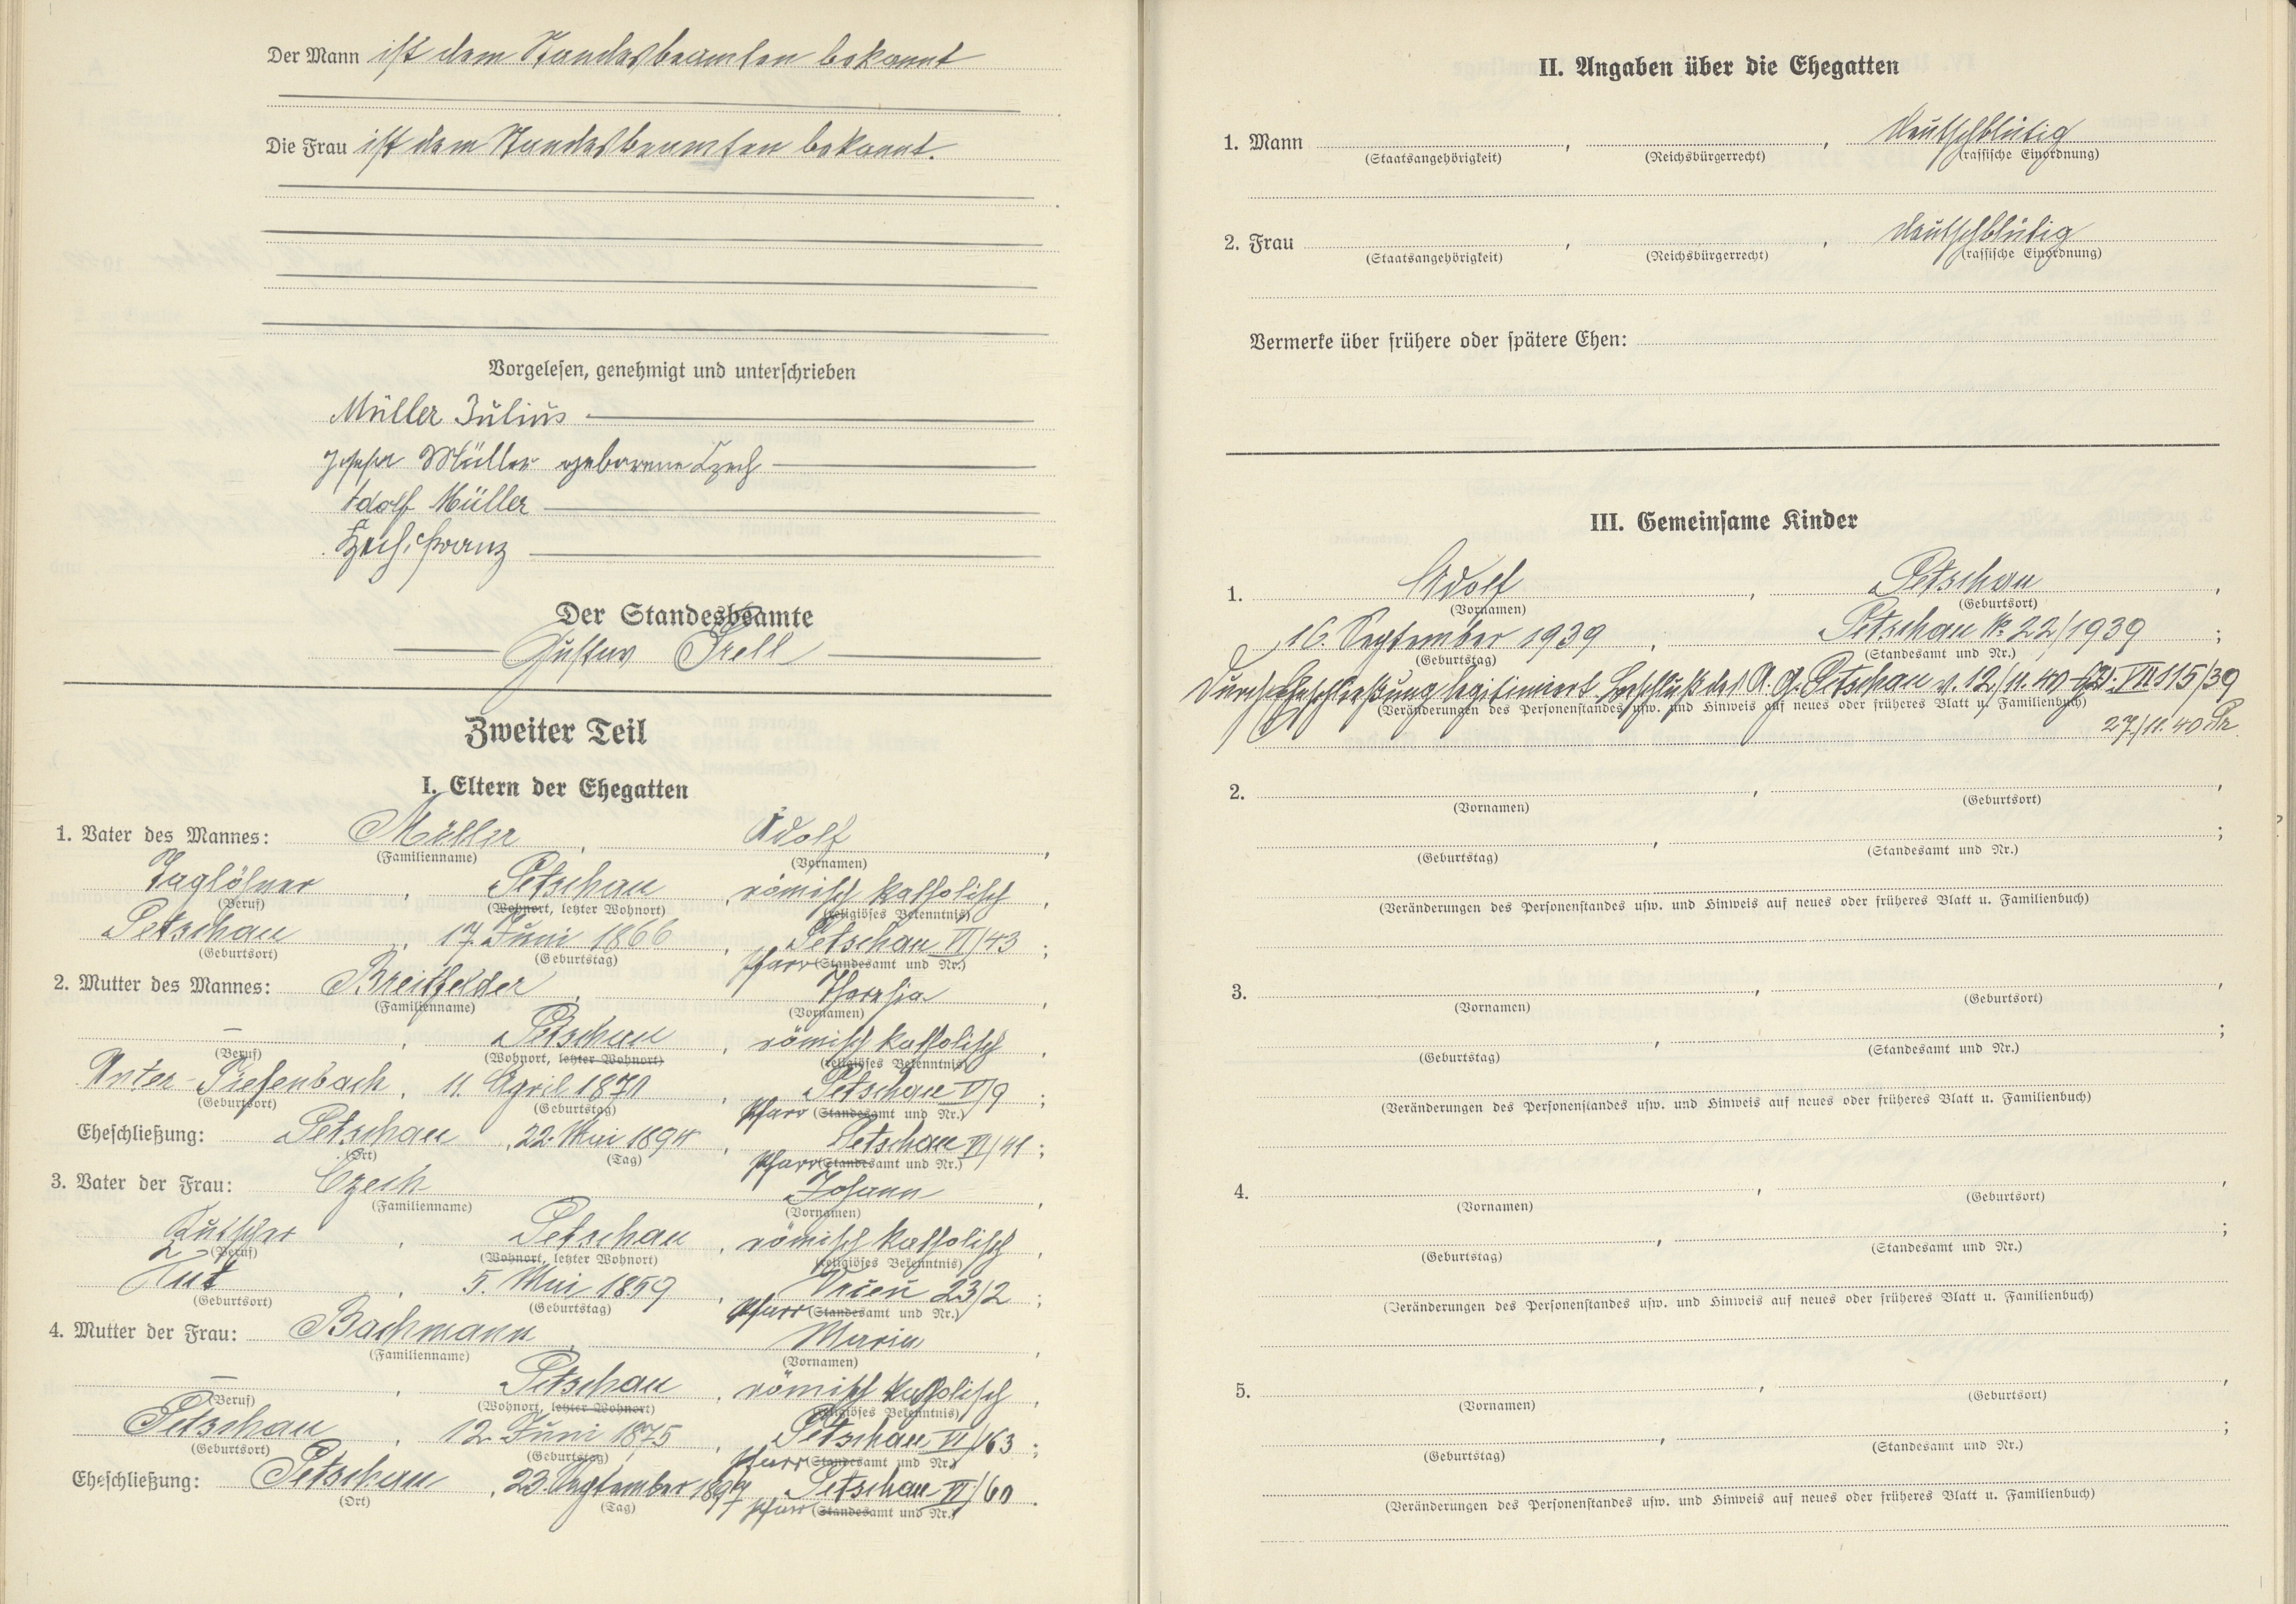 Der Mann ist dem Standesbeamten bekannt
Die Frau ist dem Standesbeamten bekannt.
Vorgelesen, genehmigt und unterschrieben
Müller Julius
Josefa Müller geborene Czech
Adolf Müller
Czech Franz
Der Standesbeamte
Gustav Prell
Zweiter Teil
I. Eltern der Ehegatten
1. Vater des Mannes: Müller, Adolf,
(Familienname) (Vornamen)
Taglöhner, Petschau, römisch katholisch,
(Beruf) (Wohnort, letzter Wohnort) (religiöses Bekenntnis)
Petschau, 17. Juni 1866, Petschau VI/43;
(Geburtsort) (Geburtstag) Pfarr (Standesamt und Nr.)
2. Mutter des Mannes: Breitfelder, Theresia,
(Familienname) (Vornamen)
–, Petschau, römisch katholisch,
(Beruf) (Wohnort, letzter Wohnort) (religiöses Bekenntnis)
Unter-Tiefenbach, 11. April 1871, Petschau V/9;
(Geburtsort) (Geburtstag) Pfarr (Standesamt und Nr.)
Eheschließung: Petschau, 22. Mai 1894, Petschau VI/41;
(Ort) (Tag) Pfarr (Standesamt und Nr.)
3. Vater der Frau: Czech, Johann,
(Familienname) (Vornamen)
Kutscher, Petschau, römisch katholisch,
(Beruf) (Wohnort, letzter Wohnort) (religiöses Bekenntnis)
5. Mai 1859, 23/2;
(Geburtsort) (Geburtstag) Pfarr (Standesamt und Nr.)
4. Mutter der Frau: Bachmann, Maria,
(Familienname) (Vornamen)
–, Petschau, römisch katholisch,
(Beruf) (Wohnort, letzter Wohnort) (religiöses Bekenntnis)
Petschau, 12. Juni 1875, Petschau VI/163;
(Geburtsort) (Geburtstag) Pfarr (Standesamt und Nr.)
Eheschließung: Petschau, 23. September, Petschau VI/60.
(Ort) (Tag) Pfarr (Standesamt und Nr.)
II. Angaben über die Ehegatten
1. Mann, , deutschblütig
(Staatsangehörigkeit) (Reichsbürgerrecht) (rassische Einordnung)
2. Frau, , deutschblütig
(Staatsangehörigkeit) (Reichsbürgerrecht) (rassische Einordnung)
Vermerke über frühere oder spätere Ehen:
III. Gemeinsame Kinder
1. Adolf, Petschau,
(Vornamen) (Geburtsort)
16. September 1939, Petschau No. 22/1939;
(Geburtstag) (Standesamt und Nr.)
Durch Eheschließung legitimiert. Beschluß des A. G. Petschau v. 12/11. 40 VIII 115/39
(Veränderungen des Personenstandes usw. und Hinweis auf neues oder früheres Blatt u. Familienbuch)
27/11. 40 Pr
2. , ,
(Vornamen) (Geburtsort)
, ;
(Geburtstag) (Standesamt und Nr.)
(Veränderungen des Personenstandes usw. und Hinweis auf neues oder früheres Blatt u. Familienbuch)
3. , ,
(Vornamen) (Geburtsort)
, ;
(Geburtstag) (Standesamt und Nr.)
(Veränderungen des Personenstandes usw. und Hinweis auf neues oder früheres Blatt u. Familienbuch)
4. , ,
(Vornamen) (Geburtsort)
, ;
(Geburtstag) (Standesamt und Nr.)
(Veränderungen des Personenstandes usw. und Hinweis auf neues oder früheres Blatt u. Familienbuch)
5. , ,
(Vornamen) (Geburtsort)
, ;
(Geburtstag) (Standesamt und Nr.)
(Veränderungen des Personenstandes usw. und Hinweis auf neues oder früheres Blatt u. Familienbuch)